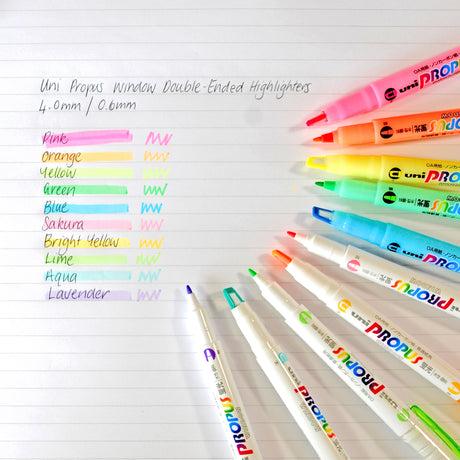 Uni Propus Window Double-Ended Highlighters
4.0mm / 0.6mm
Pink
Orange
Yellow
Green
Blue
Sakura
Bright Yellow
Lime
Aqua
Lavender
uni PROPUS
uni PROPUS
uni PROPUS
uni PROPUS
uni PROPUS
PROPUS
uni PROPUS
uni PROPUS
PROPUS
PROPUS